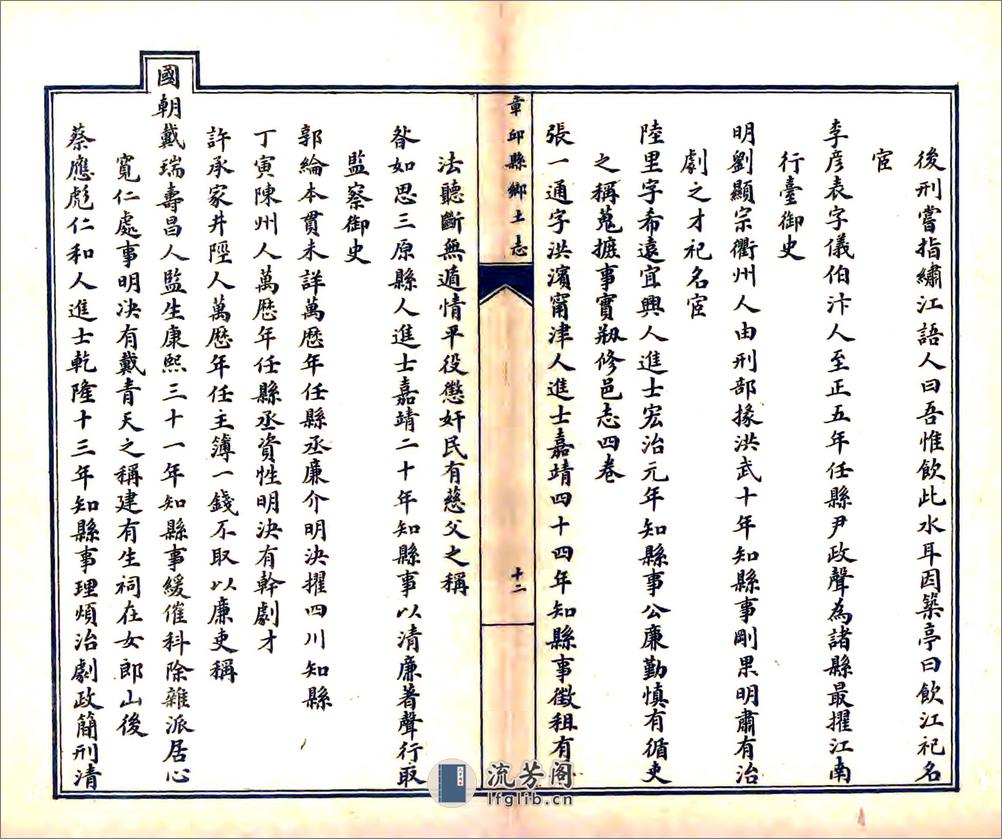 後刑嘗指繡江語人曰吾惟飲此水耳因築亭曰飲江祀名
宦
李彥表字儀伯汴人至正五年任縣尹政聲為諸縣最擢江南
行臺御史
明劉顯宗衢州人由刑部掾洪武十年知縣事剛果明肅有治
劇之才祀名宦
陸里字希遠宜興人進士宏治元年知縣事公廉勤慎有循吏
之稱蒐摭事實剏修邑志四卷
張一通字洪濱甯津人進士嘉靖四十四年知縣事徵租有
章邱縣鄉土志
十二
法聽斷無遁情平役懲奸民有慈父之稱
昝如思三原縣人進士嘉靖二十年知縣事以清廉著聲行取
監察御史
郭綸本貫未詳萬歷年任縣丞廉介明決擢四川知縣
丁寅陳州人萬歷年任縣丞資性明決有幹劇才
許承家井陘人萬歷年任主簿一錢不取以廉吏稱
國朝戴瑞壽昌人監生康熙三十一年知縣事緩催科除雜派居心
寬仁處事明決有戴青天之稱建有生祠在女郎山後
蔡應彪仁和人進士乾隆十三年知縣事理煩治劇政簡刑清
流芳阁
lfglib.cn